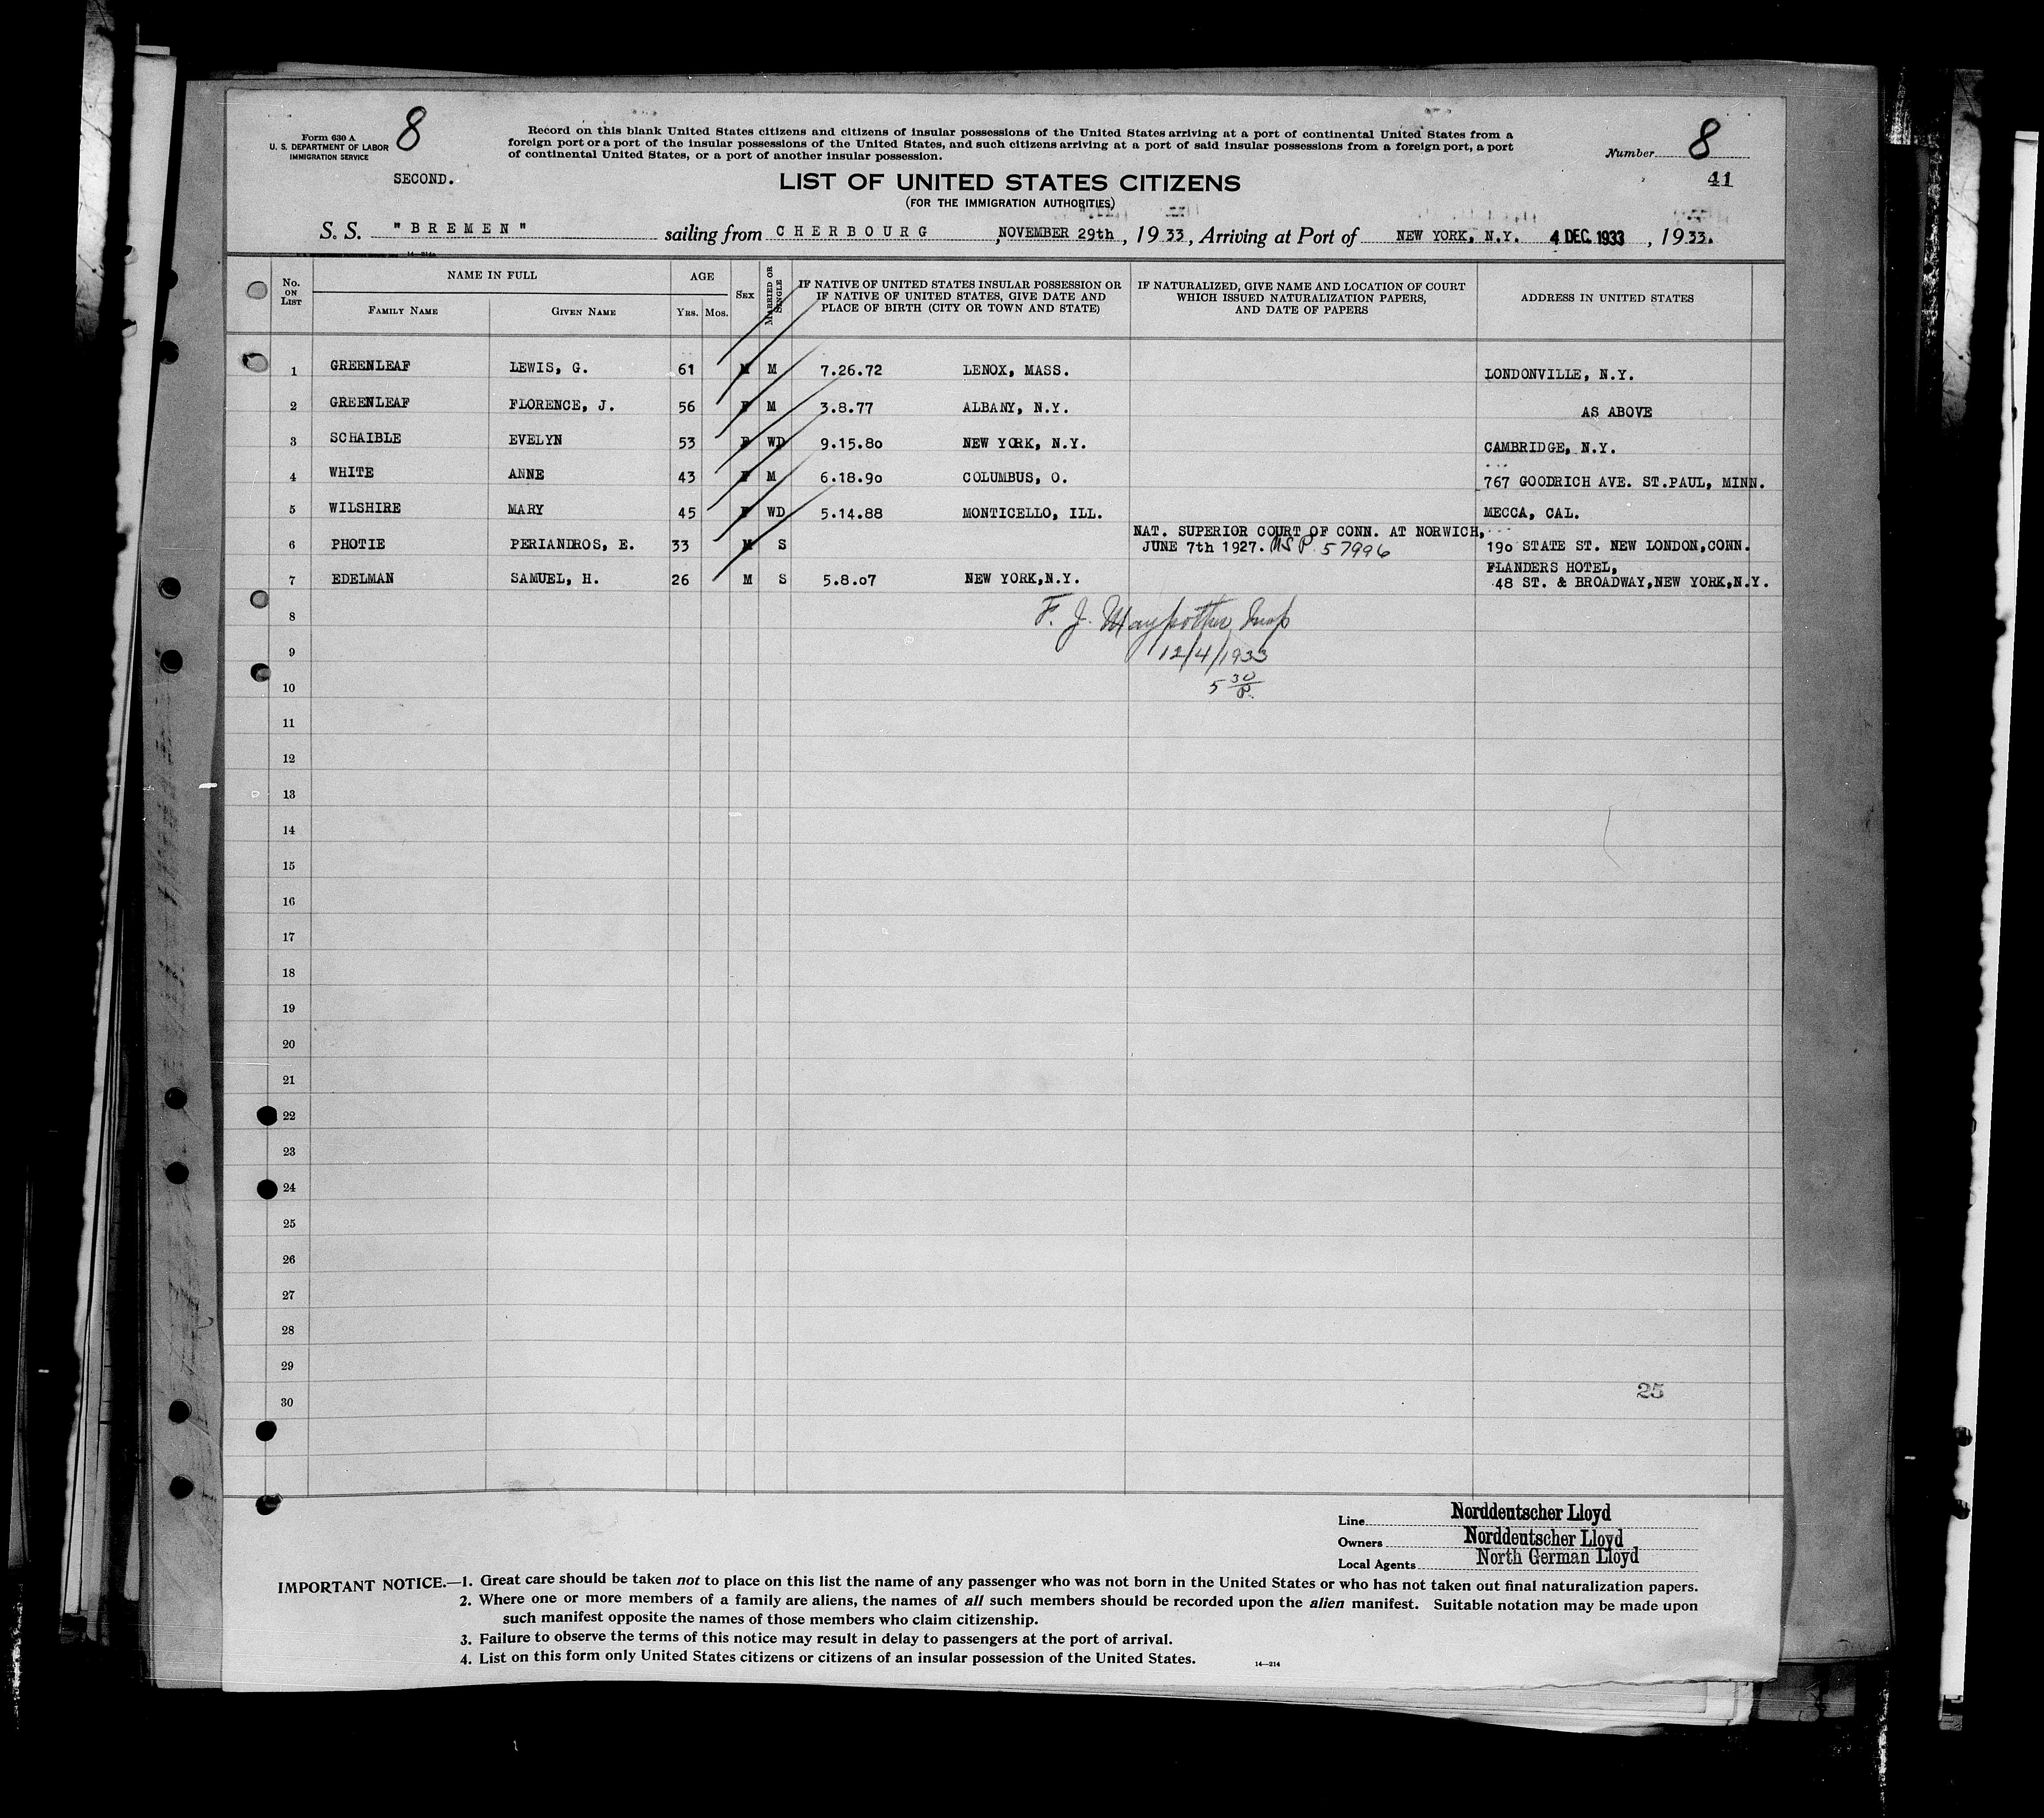 8
Form 630 A
U. S. DEPARTMENT OF LABOR
IMMIGRATION SERVICE
SECOND.
Record on this blank United States citizens and citizens of insular possessions of the United States arriving at a port of continental United States from a
foreign port or a port of the insular possessions of the United States, and such citizens arriving at a port of said insular possessions from a foreign port, a port
of continental United States, or a port of another insular possession.
Number 8
41
LIST OF UNITED STATES CITIZENS
(FOR THE IMMIGRATION AUTHORITIES)
S. S. "BREMEN" sailing from CHERBOURG, NOVEMBER 29th, 1933, Arriving at Port of NEW YORK, N.Y. 4 DEC. 1933, 1933.
14—214a
No. ON LIST NAME IN FULL FAMILY NAME GIVEN NAME AGE YRS. MOS. SEX MARRIED OR SINGLE IF NATIVE OF UNITED STATES INSULAR POSSESSION OR IF NATIVE OF UNITED STATES, GIVE DATE AND PLACE OF BIRTH (CITY OR TOWN AND STATE) IF NATURALIZED, GIVE NAME AND LOCATION OF COURT WHICH ISSUED NATURALIZATION PAPERS, AND DATE OF PAPERS ADDRESS IN UNITED STATES
1 GREENLEAF LEWIS, G. 61 M M 7.26.72 LENOX, MASS. LONDONVILLE, N.Y.
2 GREENLEAF FLORENCE, J. 56 F M 3.8.77 ALBANY, N.Y. AS ABOVE
3 SCHAIBLE EVELYN 53 F WD 9.15.80 NEW YORK, N.Y. CAMBRIDGE, N.Y.
4 WHITE ANNE 43 F M 6.18.90 COLUMBUS, O. 767 GOODRICH AVE. ST.PAUL, MINN.
5 WILSHIRE MARY 45 F WD 5.14.88 MONTICELLO, ILL. MECCA, CAL.
6 PHOTIE PERIANDROS, E. 33 M S NAT. SUPERIOR COURT OF CONN. AT NORWICH, JUNE 7th 1927. US P. 57996 190 STATE ST. NEW LONDON,CONN.
7 EDELMAN SAMUEL, H. 26 M S 5.8.07 NEW YORK,N.Y. FLANDERS HOTEL, 48 ST. & BROADWAY,NEW YORK,N.Y.
8 F. J. Maypother Insp
9 12/4/1933
10 5 30/P.
11
12
13
14
15
16
17
18
19
20
21
22
23
24
25
26
27
28
29
25
30
Line Norddeutscher Lloyd
Owners Norddeutscher Lloyd
Local Agents North German Lloyd
IMPORTANT NOTICE.—1. Great care should be taken not to place on this list the name of any passenger who was not born in the United States or who has not taken out final naturalization papers.
2. Where one or more members of a family are aliens, the names of all such members should be recorded upon the alien manifest. Suitable notation may be made upon
such manifest opposite the names of those members who claim citizenship.
3. Failure to observe the terms of this notice may result in delay to passengers at the port of arrival.
4. List on this form only United States citizens or citizens of an insular possession of the United States.
14—214